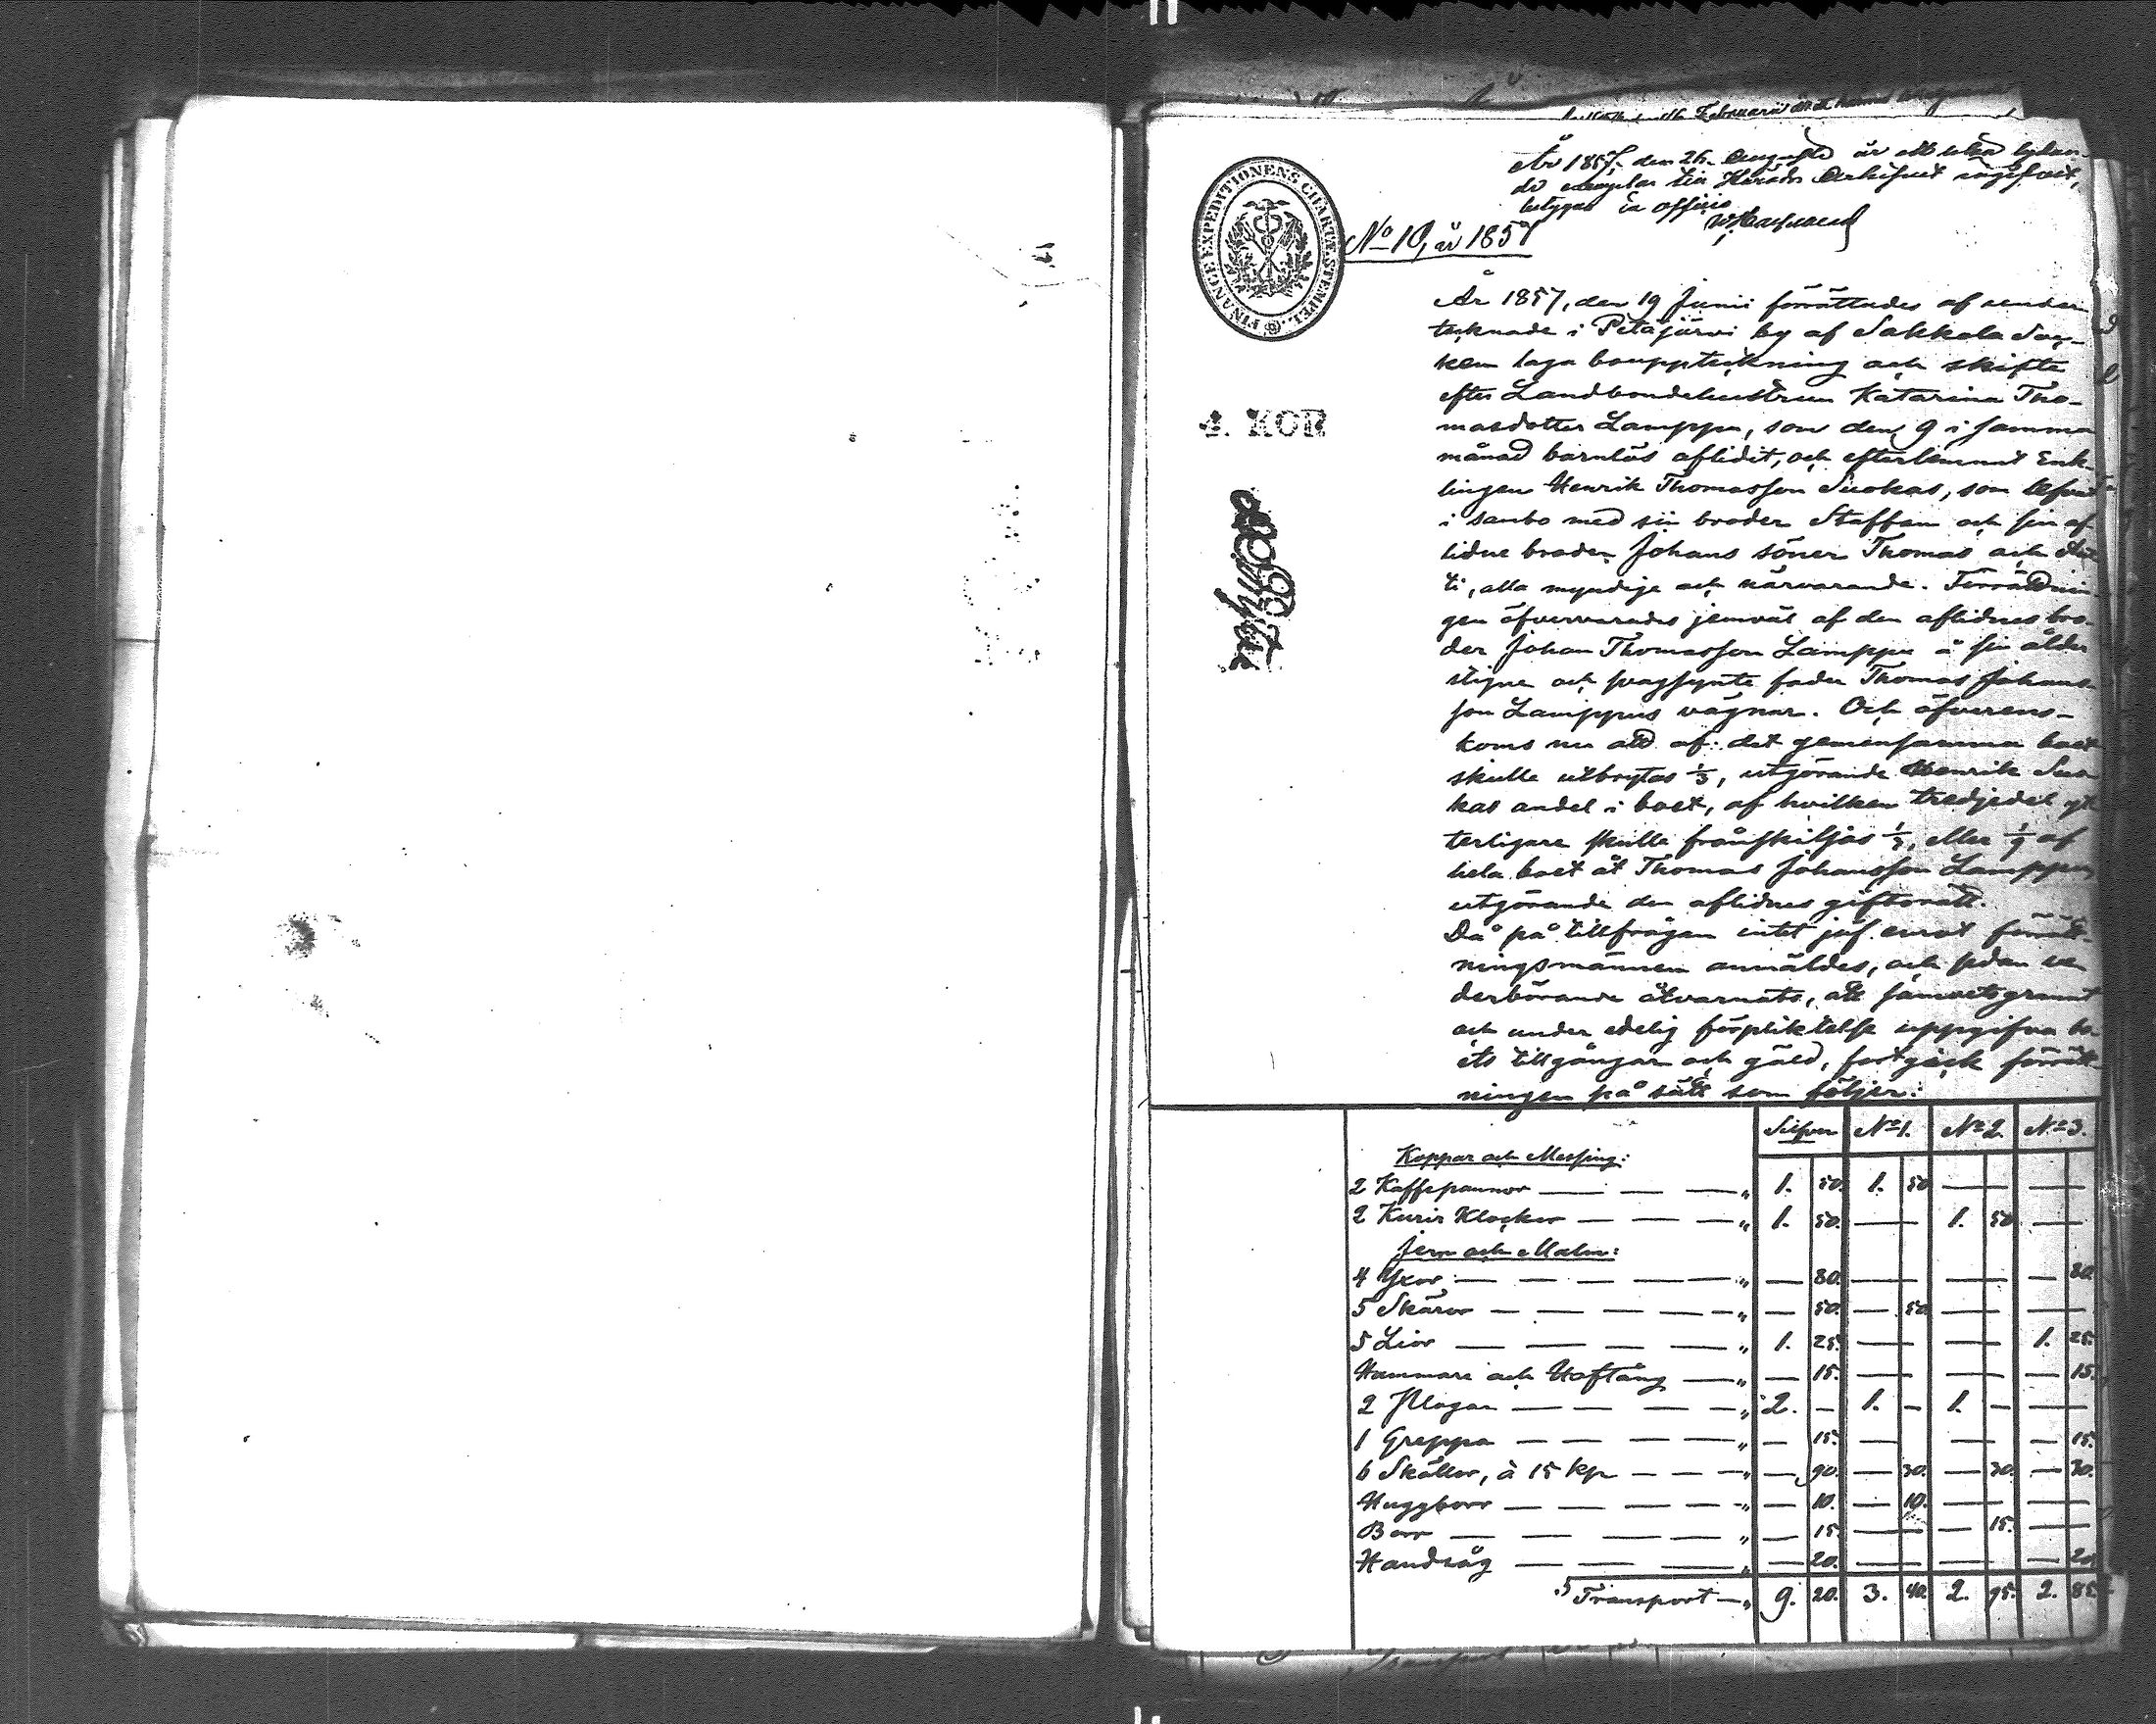 År 1857, den 26 Augusti är ett lika lydan-
de exemplar till Härads Arkifvet ingifvet,
betygas Ex officio
No 10, år 1857
FINANCE EXPEDITIONENS CHARTÆ STEMPEL.
4. KOP
År 1857, den 19 Junii förrättades af under
tecknade i Petäjärvi by af Sakkola Soc-
ken laga bouppteckning och skifte
efter Landbondehustrun Katarina Tho-
masdotter Lamppu, som den 9 i samma
månad barnlös aflidit, och efterlemnat Enk-
lingen Henrik Thomasson Suokas, som lefvat
i sambo med sin broder Staffan och sin af
lidne broder Johans söner Thomas och An
ti, alla myndige och närvarande. Förrättnin
gen öfvervarades jemväl af den aflidnes bro-
der Johan Thomasson Lamppu å sin ålder
stigne och svagsynte fader Thomas Johans-
son Lamppus vägnar. Och öfverens-
koms nu att af det gemensamma boet
skulle utbrytas 1/3, utgörande Henrik Suo
kas andel i boet, af hvilken tredjedel yt
terligare skulle frånskiljas 1/3, eller 1/9 af
hela boet åt Thomas Johansson Lamppu,
utgörande den aflidnes giftorätt.
Då på tillfrågan intet jäf emot förrätt-
ningsmännen anmäldes, och sedan ve
derbörande åtvarnats, att samvetsgrant
och under edelig förpliktelse uppgifva bo
ets tillgångar och gäld, fortgick förrätt-
ningen på sätt som följer:
Silfver No 1. No 2. No 3.
Koppar och Messing:
2 Kaffepannor — — — „ 1. 50. 1. 50 — —
2 Kurir Klockor — — — „ 1. 50. — 1. 50 —
Jern och Malm:
4 Yxor — — — — „ — 80. — — — 80.
5 Skäror — — — — „ — 50. — 50. — —
5 Lior — — — — „ 1. 25. — — 1. 25.
Hammare och Hoftång — „ — 15. — — — 15.
2 Plogar — — — — „ 2. — 1. — 1. — —
1 Greppa — — — — „ — 15. — — — 15.
6 Skällor, à 15 kp — — — „ — 90. — 30. — 30. — 30.
Huggborr — — — — „ — 10. — 10. — —
Borr — — — — „ — 15. — — 15. —
Handsåg — — — „ — 20. — — — 20
Transport — „ 9. 20. 3. 40. 2. 95. 2. 85.